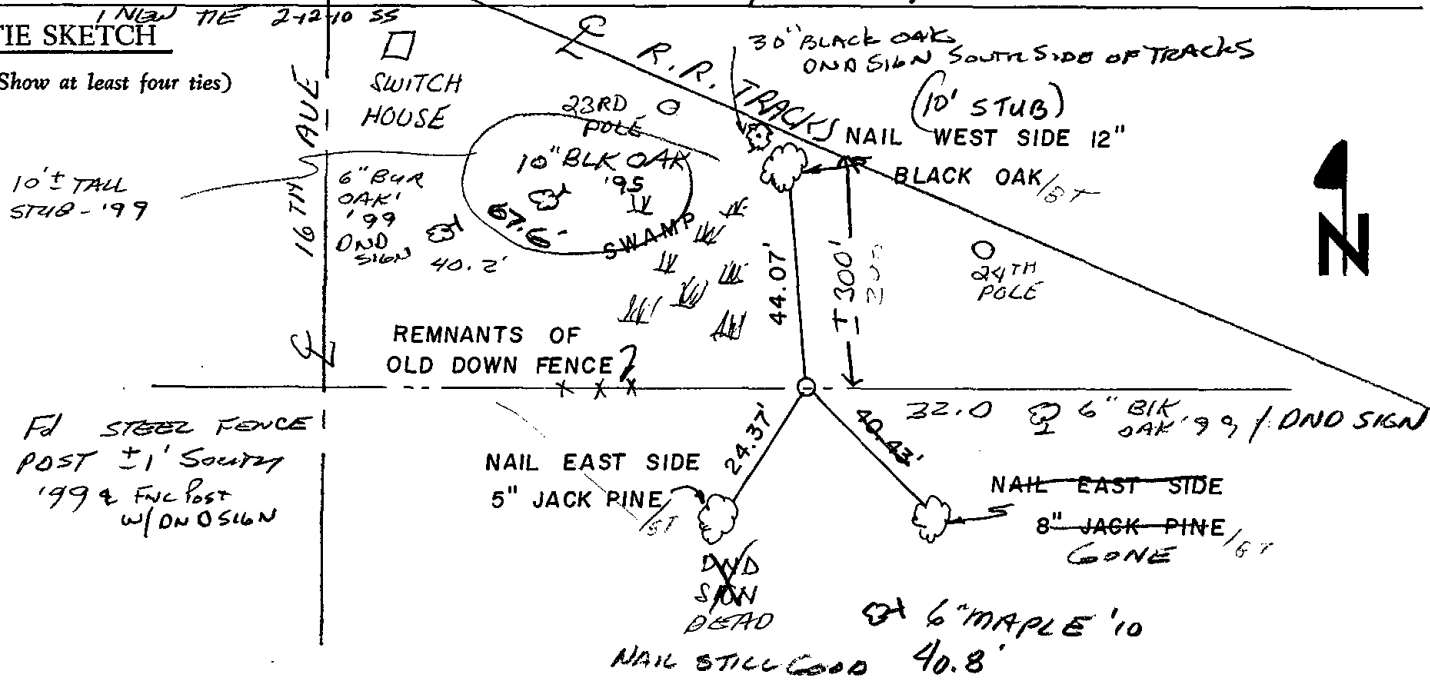 1 NEW TIE 2-12-10 SS
TIE SKETCH
(Show at least four ties)
SWITCH
HOUSE
16TH AVE
℄
R.R. TRACKS
℄
30" BLACK OAK
DND SIGN SOUTH SIDE OF TRACKS
(10' STUB)
NAIL WEST SIDE 12"
BLACK OAK/ST
23RD
POLE
10" BLK OAK
'95
67.6'
SWAMP
10'± TALL
STUB - '99
6" BUR
OAK'
'99
DND
SIGN
40.2'
44.07'
± 300'
24TH
POLE
N
REMNANTS OF
OLD DOWN FENCE ?
X X X
Fd STEEL FENCE
POST ±1' SOUTH
'99 & FNC POST
W/DND SIGN
24.37'
40.43'
32.0
6" BLK
OAK '99 / DND SIGN
NAIL EAST SIDE
5" JACK PINE/ST
NAIL EAST SIDE
8" JACK PINE/ST
GONE
DND
SIGN
DEAD
NAIL STILL GOOD
6" MAPLE '10
40.8'